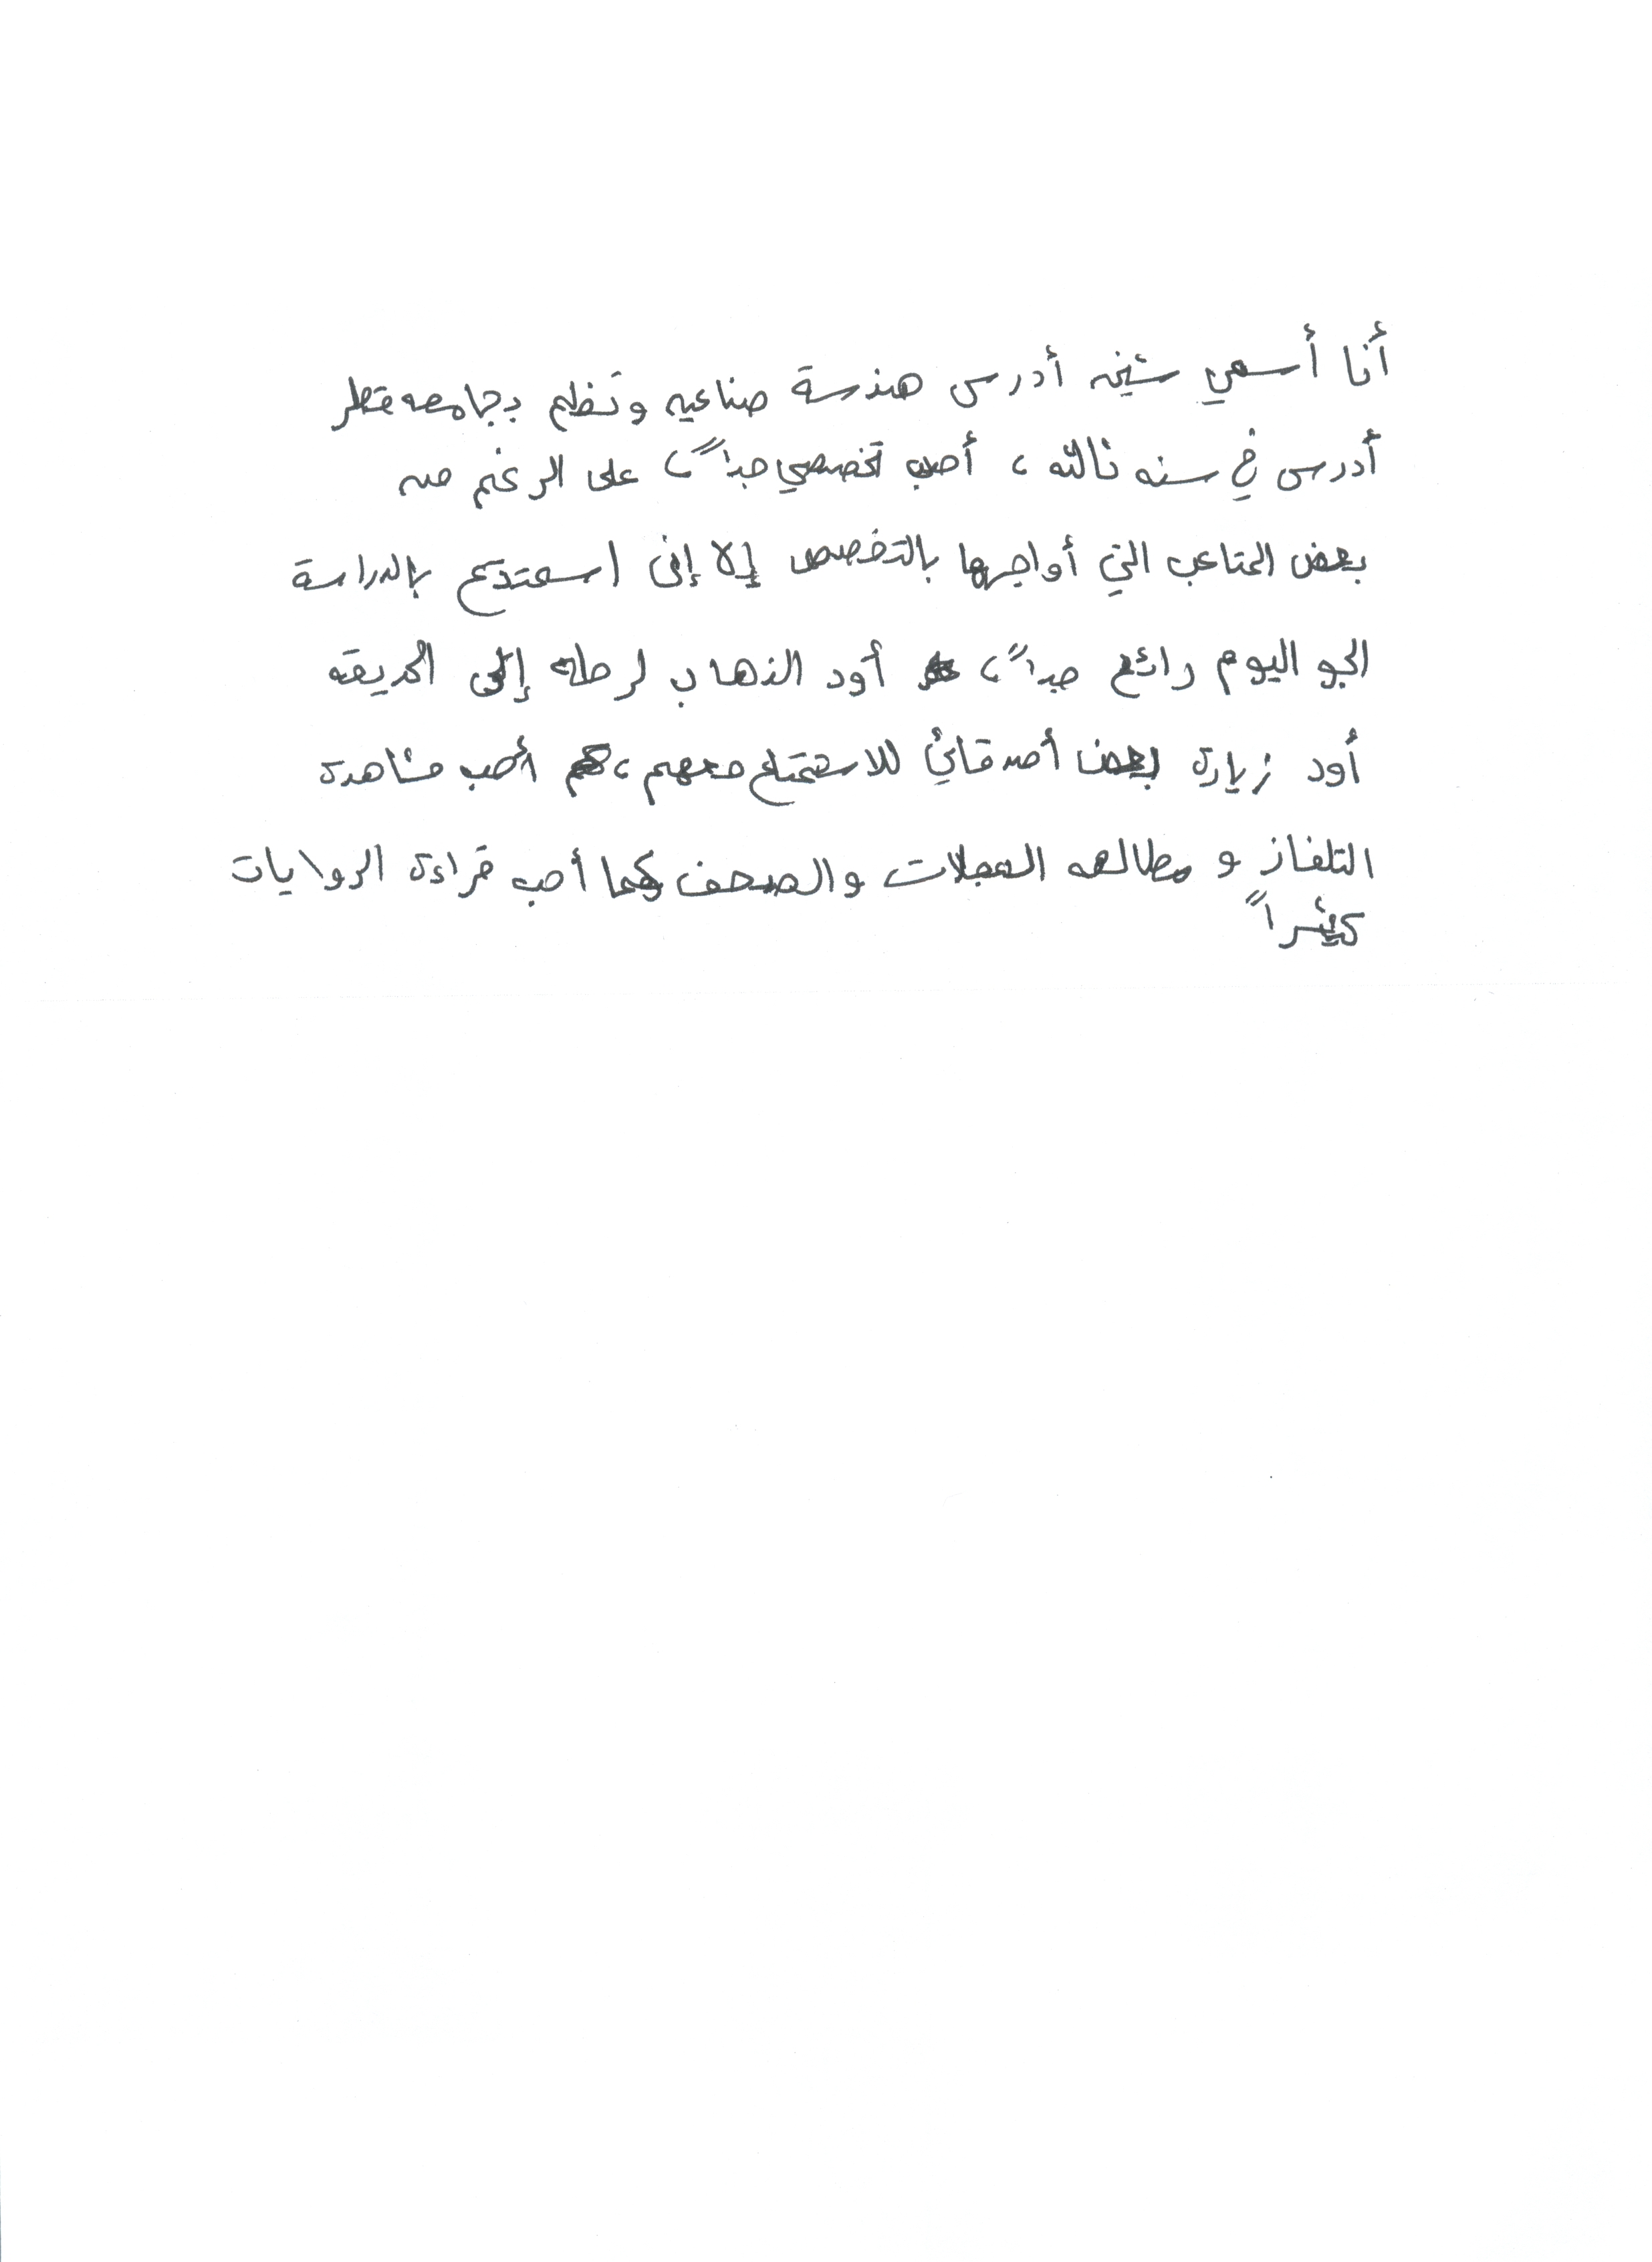 أنا أسمي شيخه أدرس هندسة صناعيه ونظم بجامعه قطر
أدرس في سنه ثالثه ، أحب تخصصي جداً ، على الرغم من
بعض المتاعب التي أواجهها بالتخصص إلا إني استمتع بالدراسة
الجو اليوم رائع جداً ، أود الذهاب لرحله إلى الحديقه
أود زيارة بعض أصدقائي للاستمتاع معهم ، أحب مشاهدة
التلفاز و مطالعه المجلات والصحف كما أحب قراءة الروايات
كثيراً